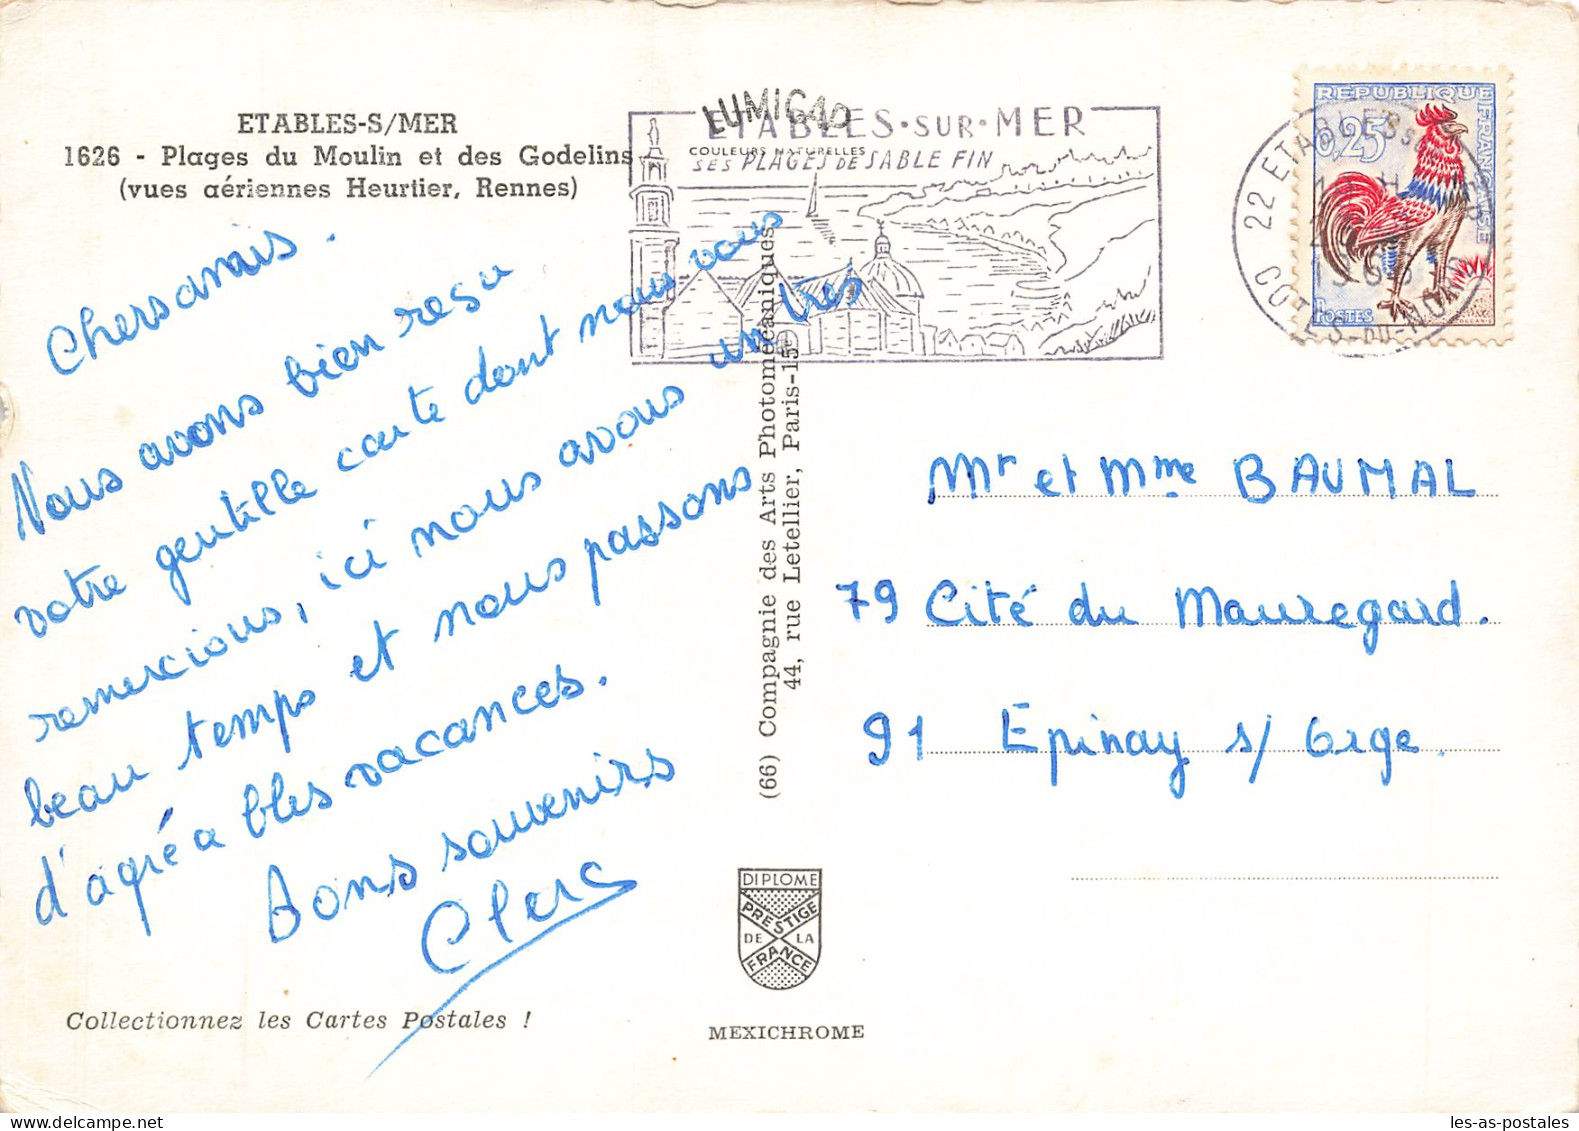 ETABLES-S/MER
1626 - Plages du Moulin et des Godelins
(vues aériennes Heurtier, Rennes)
LUMICAP
COULEURS NATURELLES
ETABLES•SUR•MER
SES PLAGES DE SABLE FIN
22 ETABLES S
COTES-DU-NORD
REPUBLIQUE
FRANCAISE
0,25
POSTES
Chers amis.
Nous avons bien resu
votre gentille carte dont nous vous
remercions, ici nous avons un très
beau temps et nous passons
d'agréables vacances.
Bons souvenirs
Clerc
(66) Compagnie des Arts Photomécaniques
44, rue Letellier, Paris-15e
Mr et Mme BAUMAL
79 Cité du Mauregard.
91 Epinay s/ Orge.
DIPLOME
PRESTIGE
DE LA
FRANCE
MEXICHROME
Collectionnez les Cartes Postales !
les-as-postales